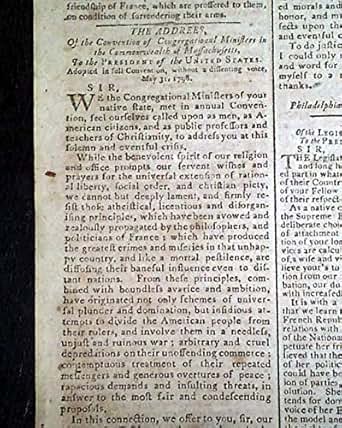 friendship of France, which are proffered to them,
on condition of surrendering their arms.
THE ADDRESS,
Of the Convention of Congregational Ministers in
the Commonwealth of Massachusetts,
To the PRESIDENT of the UNITED STATES.
Adopted in full Convention, without a dissenting voice,
May 31, 1798.
SIR,
WE the Congregational Ministers of your
native state, met in annual Conven-
tion, feel ourselves called upon as men, as A-
merican citizens, and as public professors and
teachers of Christianity, to address you at this
solemn and eventful crisis.
While the benevolent spirit of our religion
and office prompts our fervent wishes and
prayers for the universal extension of ration-
al liberty, social order, and christian piety,
we cannot but deeply lament, and firmly re-
sist those atheistical, licentious and disorga-
nising principles, which have been avowed and
zealously propagated by the philosophers, and
politicians of France; which have produced
the greatest crimes and miseries in that unhap-
py country, and like a mortal pestilence, are
diffusing their baneful influence even to dis-
tant nations. From these principles, com-
bined with boundless avarice and ambition,
have originated not only schemes of univer-
sal plunder and domination, but insidious at-
tempts to divide the American people from
their rulers, and involve them in a needless,
unjust and ruinous war; arbitrary and cruel
depredations on their unoffending commerce;
contemptuous treatment of their repeated
messengers and generous overtures of peace;
rapacious demands and insulting threats, in
answer to the most fair and condescending
proposals.
In this connection, we offer to you, sir, our
ed morals and
honor, and m
fects upon th
and eventful c
To do justic
I could only
and word for
myself to a
thanks.
Philadelphia
Of the LEGIS
To the P
SIR,
THE Legislat
and long h
ed part in what
of their Count
of your Fellow
of their respect
As a native o
the Supreme E
deliberate choic
of attachment
tion of your lon
vices are calcul
of a wife and vi
lieve your's to
tion from our
bation, our do
with increased
It is with a
that we learn
French Repub
relations with
of the Nation
petuate her frie
lieved that the
of her politic
could have be
ion of parties,
solution. She
tends for dom
voice of her E